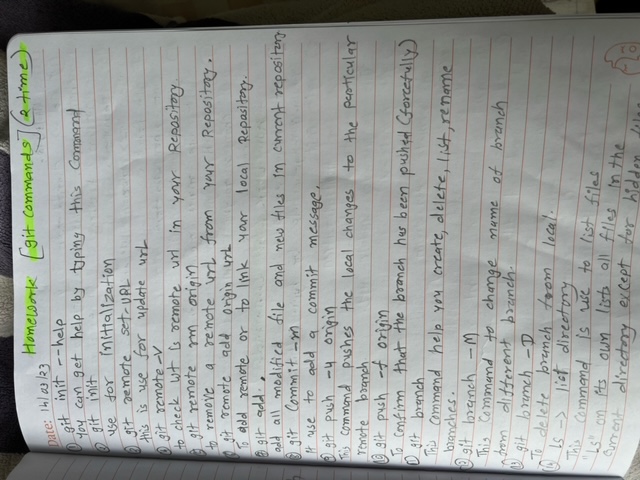 Homework [git commands] (2 time)
Date: 14/03/23
① git init --help
you can get help by typing this Command
② git init
use for initialization
③ git remote set-URL
this is use for update url
④ git remote -v
to check wt is remote url in your Repository
⑤ git remote rm origin
to remove a remote url from your Repository.
⑥ git remote add origin url
To add remote or to link your local Repository.
⑦ git add .
add all modified file and new files in current repository
⑧ git Commit -m
it use to add a commit message.
⑨ git push -u origin
This command pushes the local changes to the particular
remote branch
⑩ git push -f origin
To confirm that the branch has been pushed (forcefully)
⑪ git branch
This command help you create, delete, list, rename
branches.
⑫ git branch -M
This Command to change name of branch
from different branch.
⑬ git branch -D
To delete branch from local.
⑭ Ls -> list directory
This command is use to list files
"Ls" on its own lists all files in the
current directory except for hidden